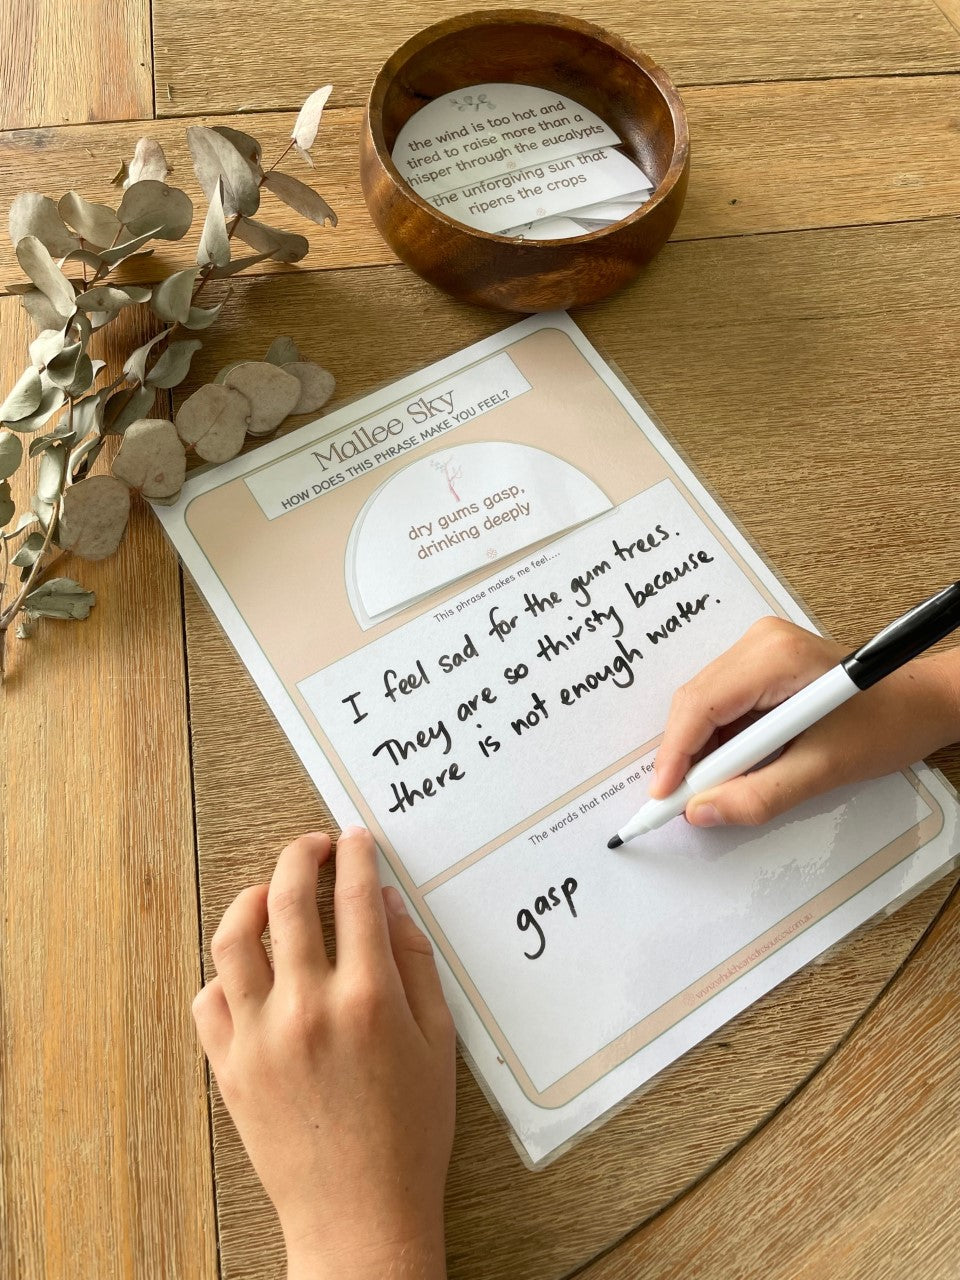 the wind is too hot and
tired to raise more than a
hisper through the eucalypts
the unforgiving sun that
ripens the crops
Mallee Sky
HOW DOES THIS PHRASE MAKE YOU FEEL?
dry gums gasp,
drinking deeply
This phrase makes me feel....
I feel sad for the gum trees.
They are so thirsty because
there is not enough water.
The words that make me feel
gasp